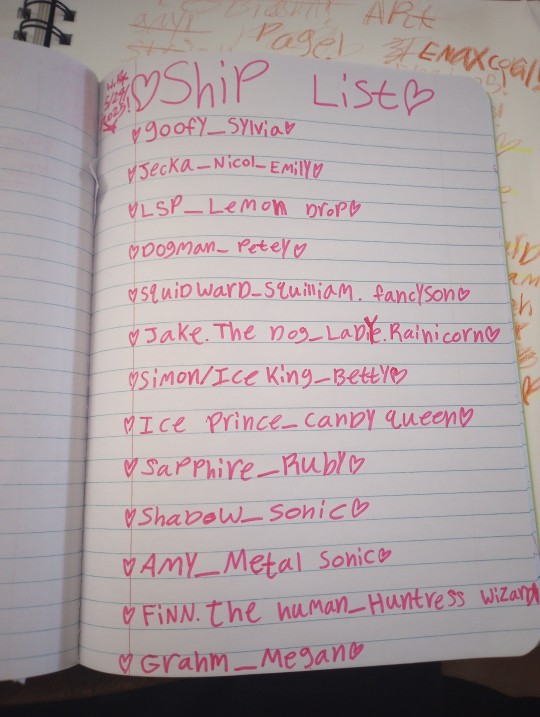 APRt
Page!
ENAXcoal!
♡Ship List♡
♡goofy_Sylvia♡
♡Jecka_Nicol_Emily♡
♡LSP_Lemon Drop♡
♡Dogman_Petey♡
♡Squidward_Squilliam.fancyson♡
♡Jake.The Dog_Lady.Rainicorn♡
♡Simon/Ice King_Betty♡
♡Ice Prince_Candy queen♡
♡Sapphire_Ruby♡
♡Shadow_Sonic♡
♡Amy_Metal Sonic♡
♡Finn.the human_Huntress Wizard
♡Grahm_Megan♡